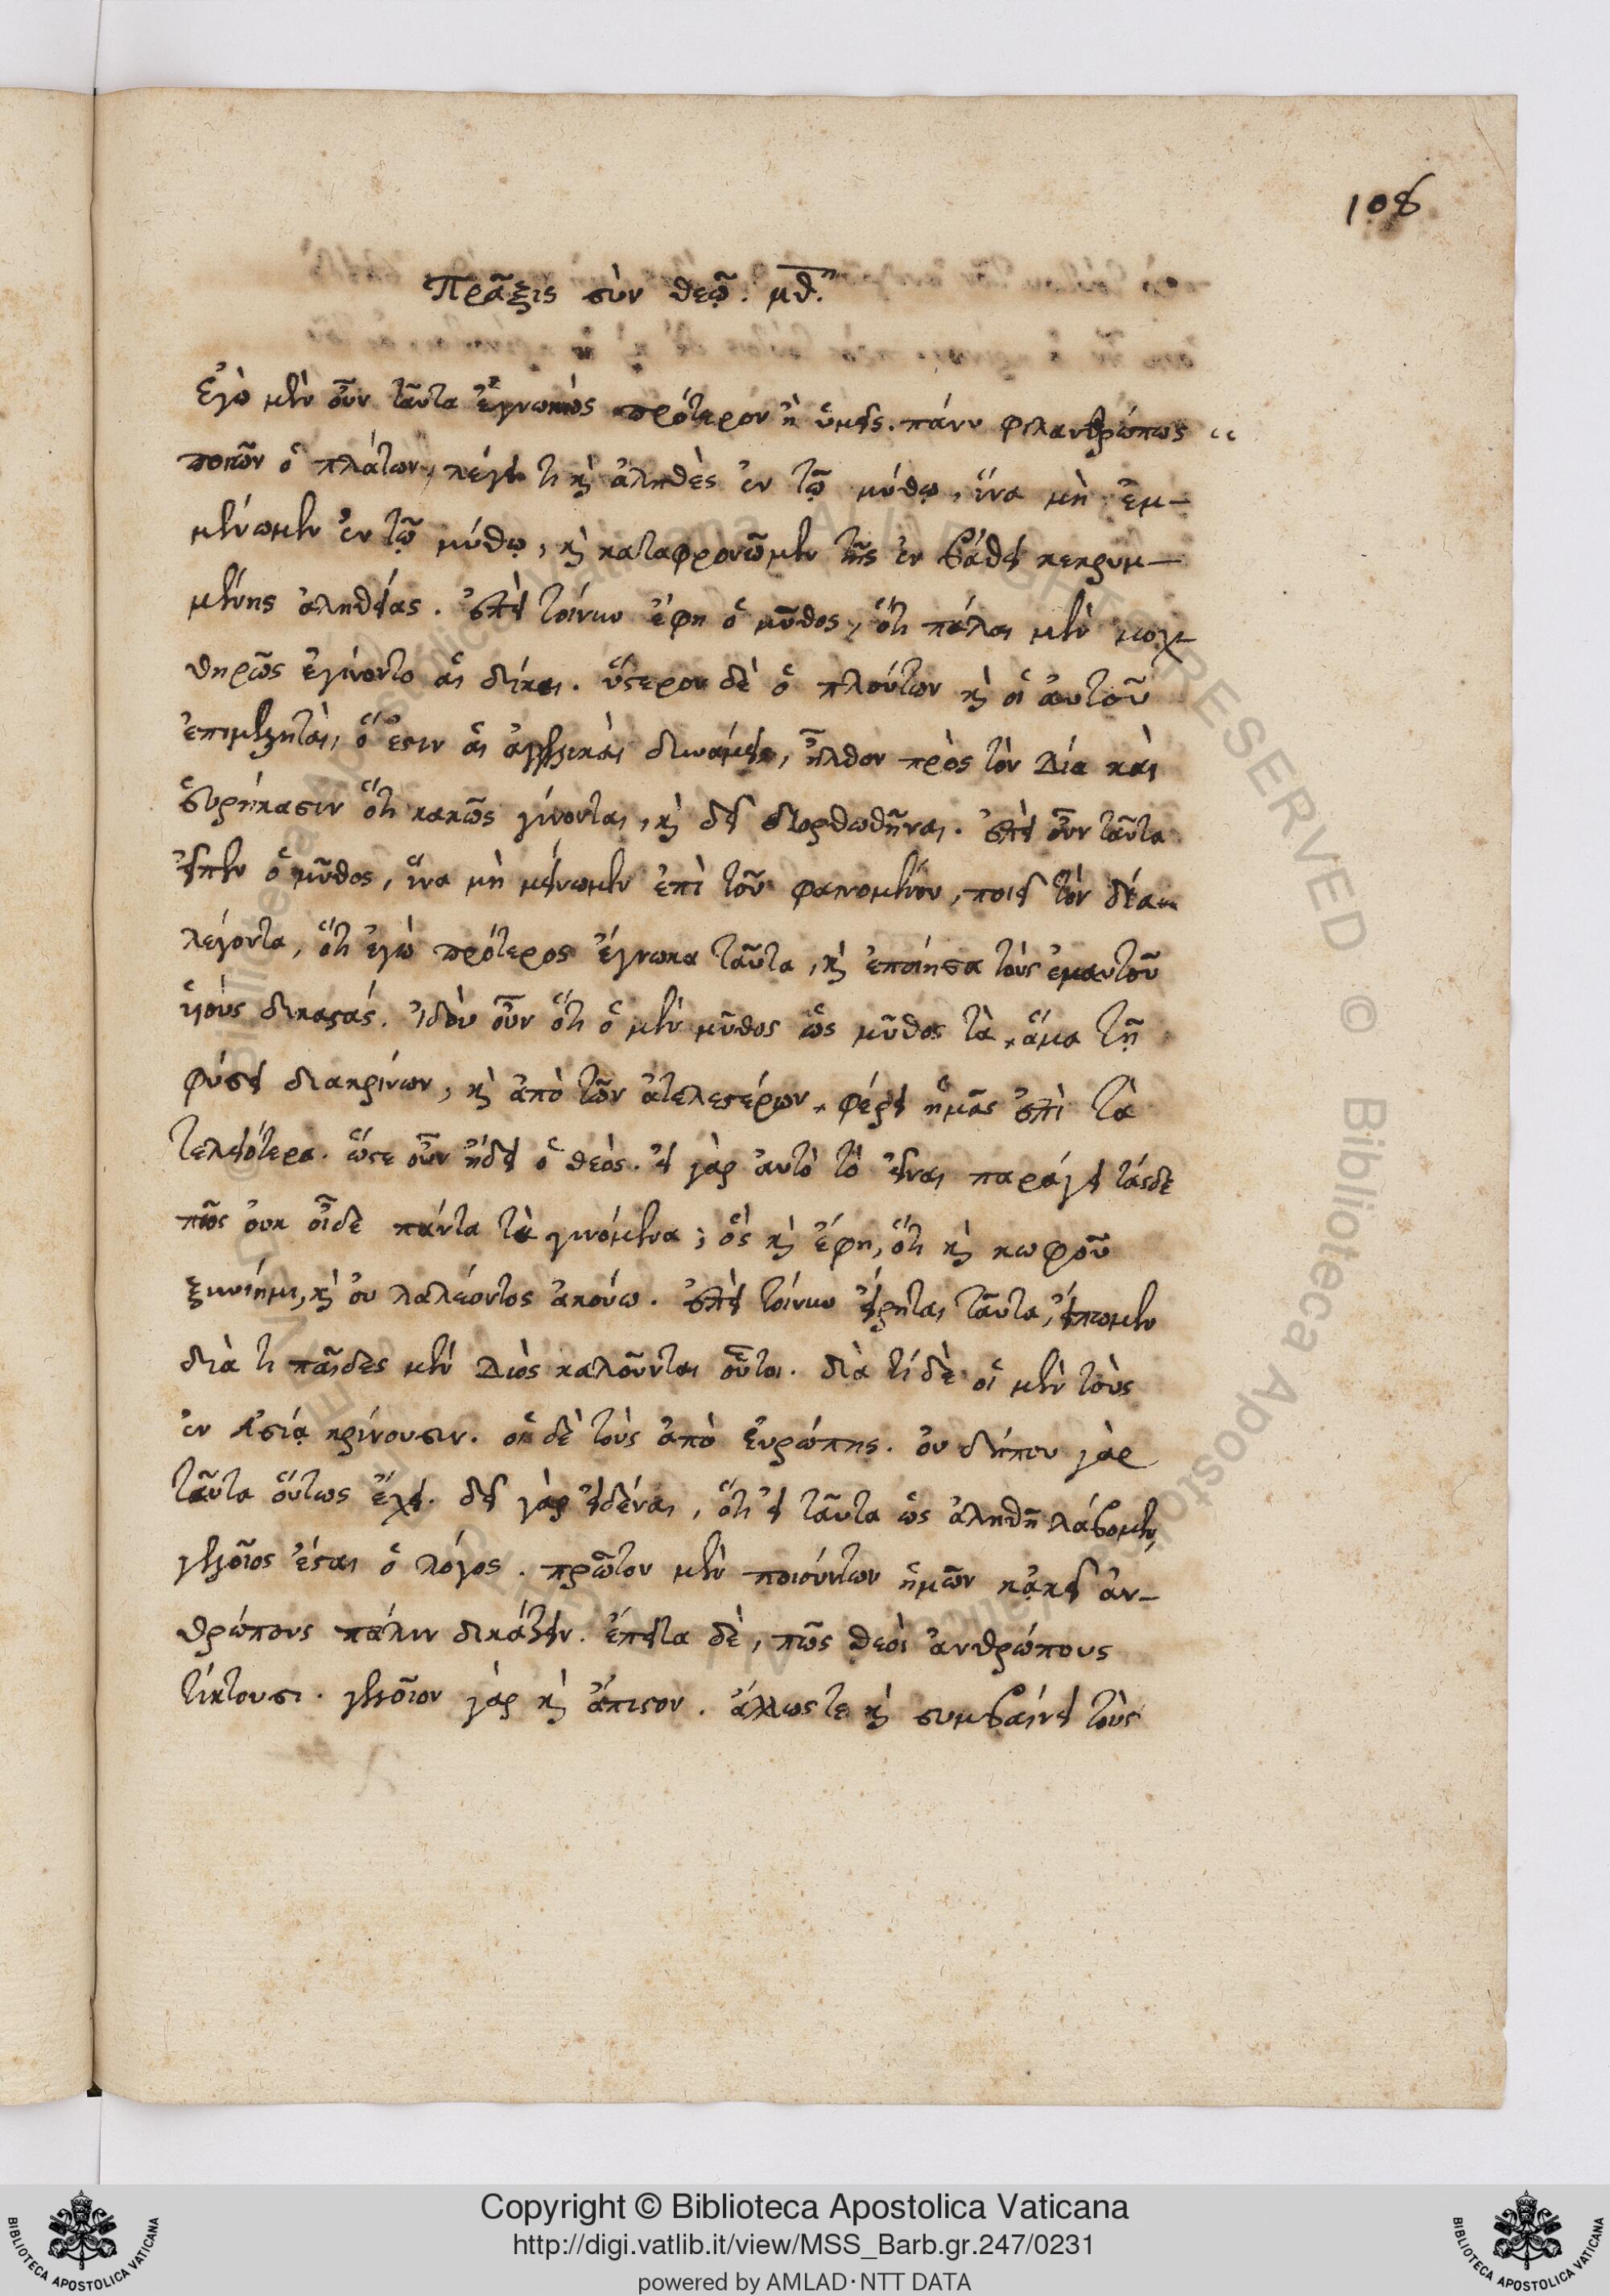 108
Πρᾶξις σὺν θεῷ. μθ.η
Ἐγὼ μὲν οὖν ταῦτα ἐγνωκὼς πρότερον ἢ ὑμεῖς. πάνυ φιλανθρώπως
ποιῶν ὁ πλάτων, λέγει τι καὶ ἀληθὲς ἐν τῷ μύθῳ, ἵνα μὴ ἐμ-
μένωμεν ἐν τῷ μύθῳ, καὶ καταφρονῶμεν τῆς ἐν βάθει κεκρυμ-
μένης ἀληθείας. ἐπεὶ τοίνυν ἔφη ὁ μῦθος, ὅτι πάλαι μὲν μοχ-
θηρῶς ἐγίνοντο αἱ δίκαι. ὕστερον δὲ ὁ πλούτων καὶ οἱ αὐτοῦ
ἐπιμεληταὶ, ὅ ἐστιν αἱ ἀγγελικαὶ δυνάμεις, ἦλθον πρὸς τὸν Δία καὶ
εὑρήκασιν ὅτι κακῶς γίνονται, καὶ δεῖ διορθωθῆναι. ἐπεὶ οὖν ταῦτα
εἶπεν ὁ μῦθος, ἵνα μὴ μείνωμεν ἐπὶ τοῦ φαινομένου, ποιεῖ τὸν δία
λέγοντα, ὅτι ἐγὼ πρότερος ἔγνωκα ταῦτα, καὶ ἐποίησα τοὺς ἐμαυτοῦ
υἱοὺς δικαστάς. Ἰδοὺ οὖν ὅτι ὁ μὲν μῦθος ὡς μῦθος τὰ ἅμα τῇ
φύσει διακρίνων, καὶ ἀπὸ τῶν ἀτελεστέρων φέρει ἡμᾶς ἐπὶ τὰ
τελειότερα. ὥστε οὖν ᾔδει ὁ θεός. εἰ γὰρ αὐτὸ τὸ εἶναι παράγει τάσδε
πῶς οὐκ οἶδε πάντα τὰ γινόμενα; ὃς καὶ ἔφη, ὅτι καὶ κωφοῦ
ξυνίημι, καὶ οὐ λαλέοντος ἀκούω. ἐπεὶ τοίνυν εἴρηται ταῦτα, εἴπωμεν
διὰ τί παῖδες μὲν Διὸς καλοῦνται οὗτοι. διὰ τί δὲ οἱ μὲν τοὺς
ἐν Ἀσίᾳ κρίνουσιν. οἱ δὲ τοὺς ἀπὸ εὐρώπης. οὐ δήπου γὰρ
ταῦτα οὕτως ἔχει. δεῖ γὰρ εἰδέναι, ὅτι εἰ ταῦτα ὡς ἀληθῆ λάβομεν,
γελοῖος ἔσται ὁ λόγος. πρῶτον μὲν ποιούντων ἡμῶν κἀκεῖ ἀν-
θρώπους πάλιν δικάζειν. ἔπειτα δὲ, πῶς θεοὶ ἀνθρώπους
τίκτουσι. γελοῖον γὰρ καὶ ἄπιστον. ἄλλως τε καὶ συμβαίνει τοὺς
Copyright © Biblioteca Apostolica Vaticana
http://digi.vatlib.it/view/MSS_Barb.gr.247/0231
powered by AMLAD·NTT DATA
BIBLIOTECA APOSTOLICA VATICANA
BIBLIOTECA APOSTOLICA VATICANA